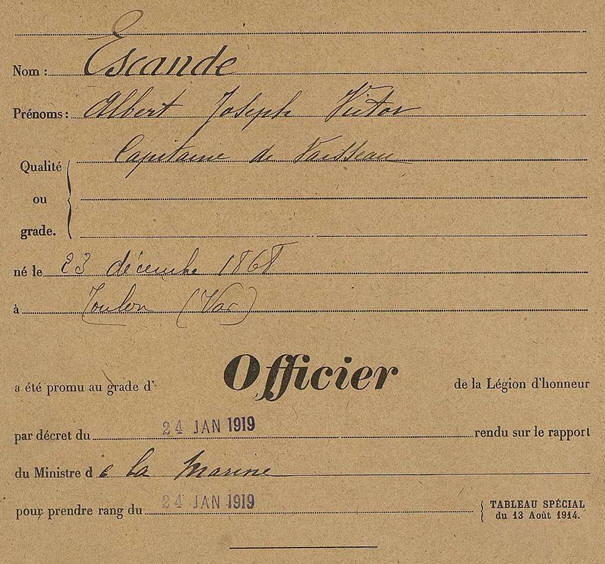 Nom : Escande
Prénoms : Albert Joseph Victor
Qualité ou grade. Capitaine de Vaisseau
né le 23 décembre 1868
à Toulon (Var)
a été promu au grade d' Officier de la Légion d'honneur
par décret du 24 JAN 1919 rendu sur le rapport
du Ministre de la Marine
pour prendre rang du 24 JAN 1919 { TABLEAU SPÉCIAL
du 13 Août 1914.